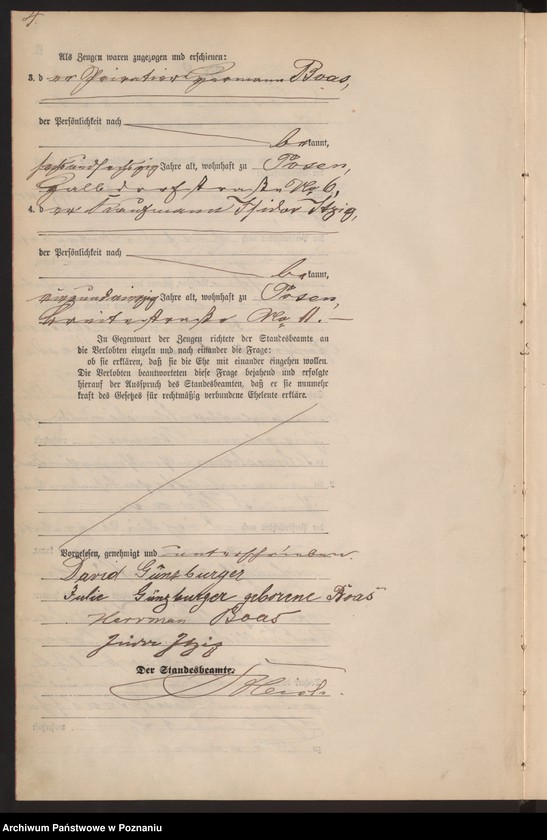 4.
Als Zeugen waren zugezogen und erschienen:
3. der Privatier Hermann Boas,
der Persönlichkeit nach
bekannt,
Jahre alt, wohnhaft zu Posen,
Halbdorfstraße No 6,
4. der Kaufmann Isidor Itzig,
der Persönlichkeit nach
bekannt,
Jahre alt, wohnhaft zu Posen,
Breitestraße No 11.
In Gegenwart der Zeugen richtete der Standesbeamte an
die Verlobten einzeln und nach einander die Frage:
ob sie erklären, daß sie die Ehe mit einander eingehen wollen.
Die Verlobten beantworteten diese Frage bejahend und erfolgte
hierauf der Ausspruch des Standesbeamten, daß er sie nunmehr
kraft des Gesetzes für rechtmäßig verbundene Eheleute erkläre.
Vorgelesen, genehmigt und unterschrieben.
David Günzburger
Julie Günzburger geborene Boas
Herrman Boas
Isidor Itzig
Der Standesbeamte.
Archiwum Państwowe w Poznaniu